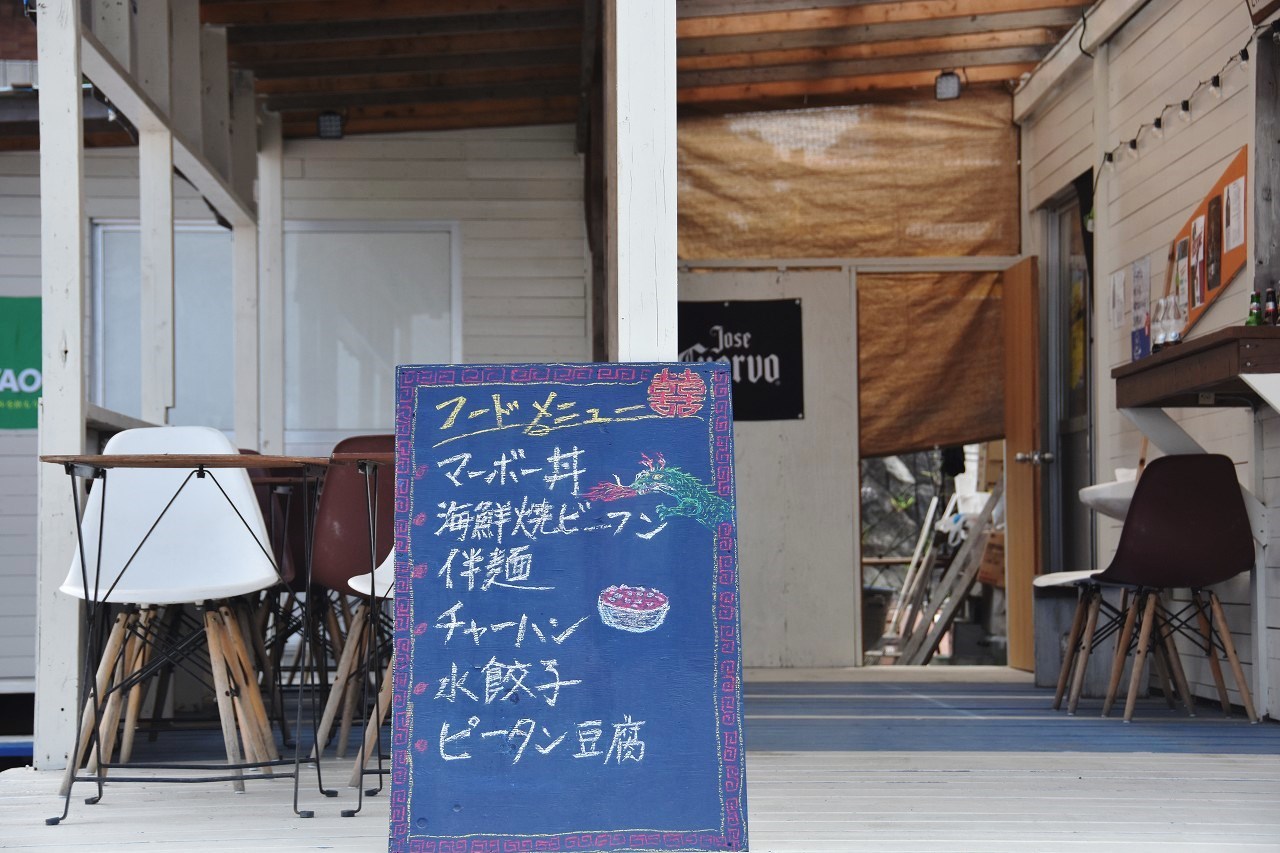 フードメニュー 囍
マーボー丼
海鮮焼ビーフン
伴麺
チャーハン
水餃子
ピータン豆腐
Jose
Cuervo
TAO